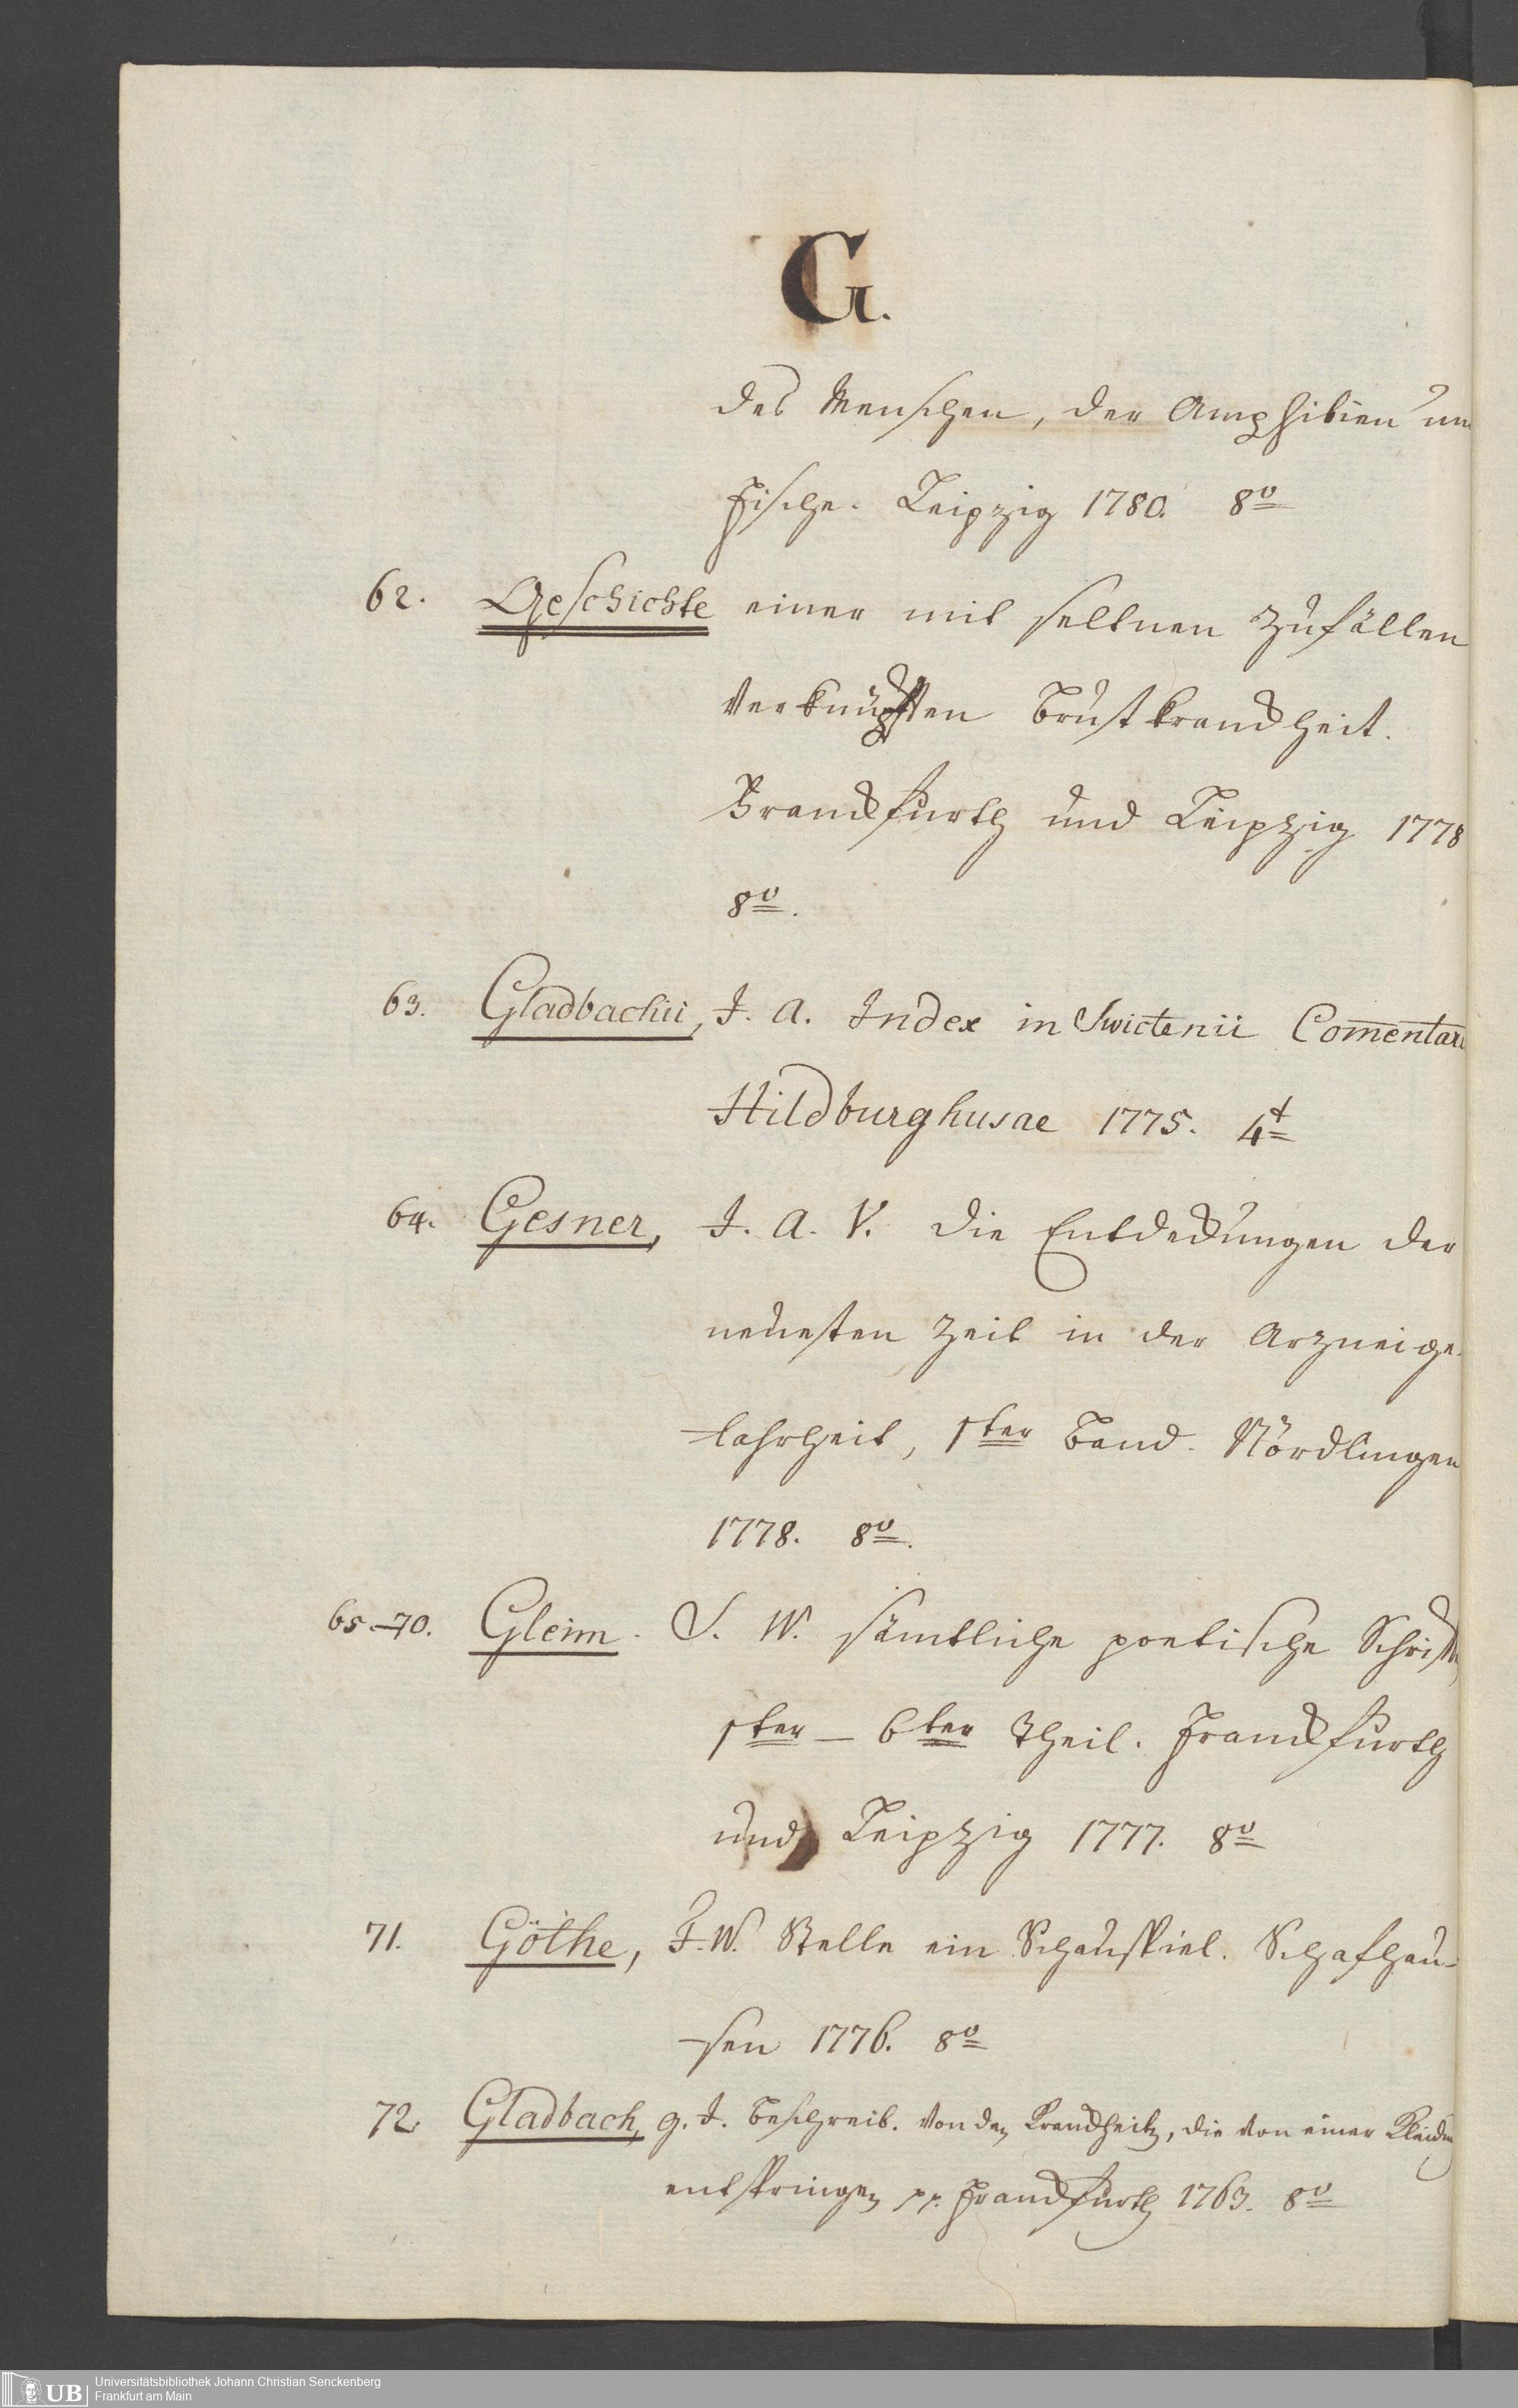 G.
des Menschen, der Amphibien un
Fische. Leipzig 1780. 8º
62. Geschichte einer mit seltnen Zufällen
verknüpften Brustkranckheit.
Franckfurth und Leipzig 1778
8º.
63. Gladbachii, J. A. Index in Swietenii Comentari
Hildburghusae 1775. 4t
64. Gesner, J. A. V. die Entdeckungen der
neuesten Zeit in der Arzneige-
-lahrheit, 1ster Band. Nördlingen
1778. 8º.
65-70. Gleim. S. W. sämtliche poetische Schriften
1ster – 6ter Theil. Franckfurth
und Leipzig 1777. 8º
71. Göthe, J. W. Stella ein Schauspiel. Schafhau-
-sen 1776. 8º
72. Gladbach, g. J. Beschreib. von den Kranckheiten, die von einer
entspringen pp. Franckfurth 1763. 8º
UB Universitätsbibliothek Johann Christian Senckenberg
Frankfurt am Main